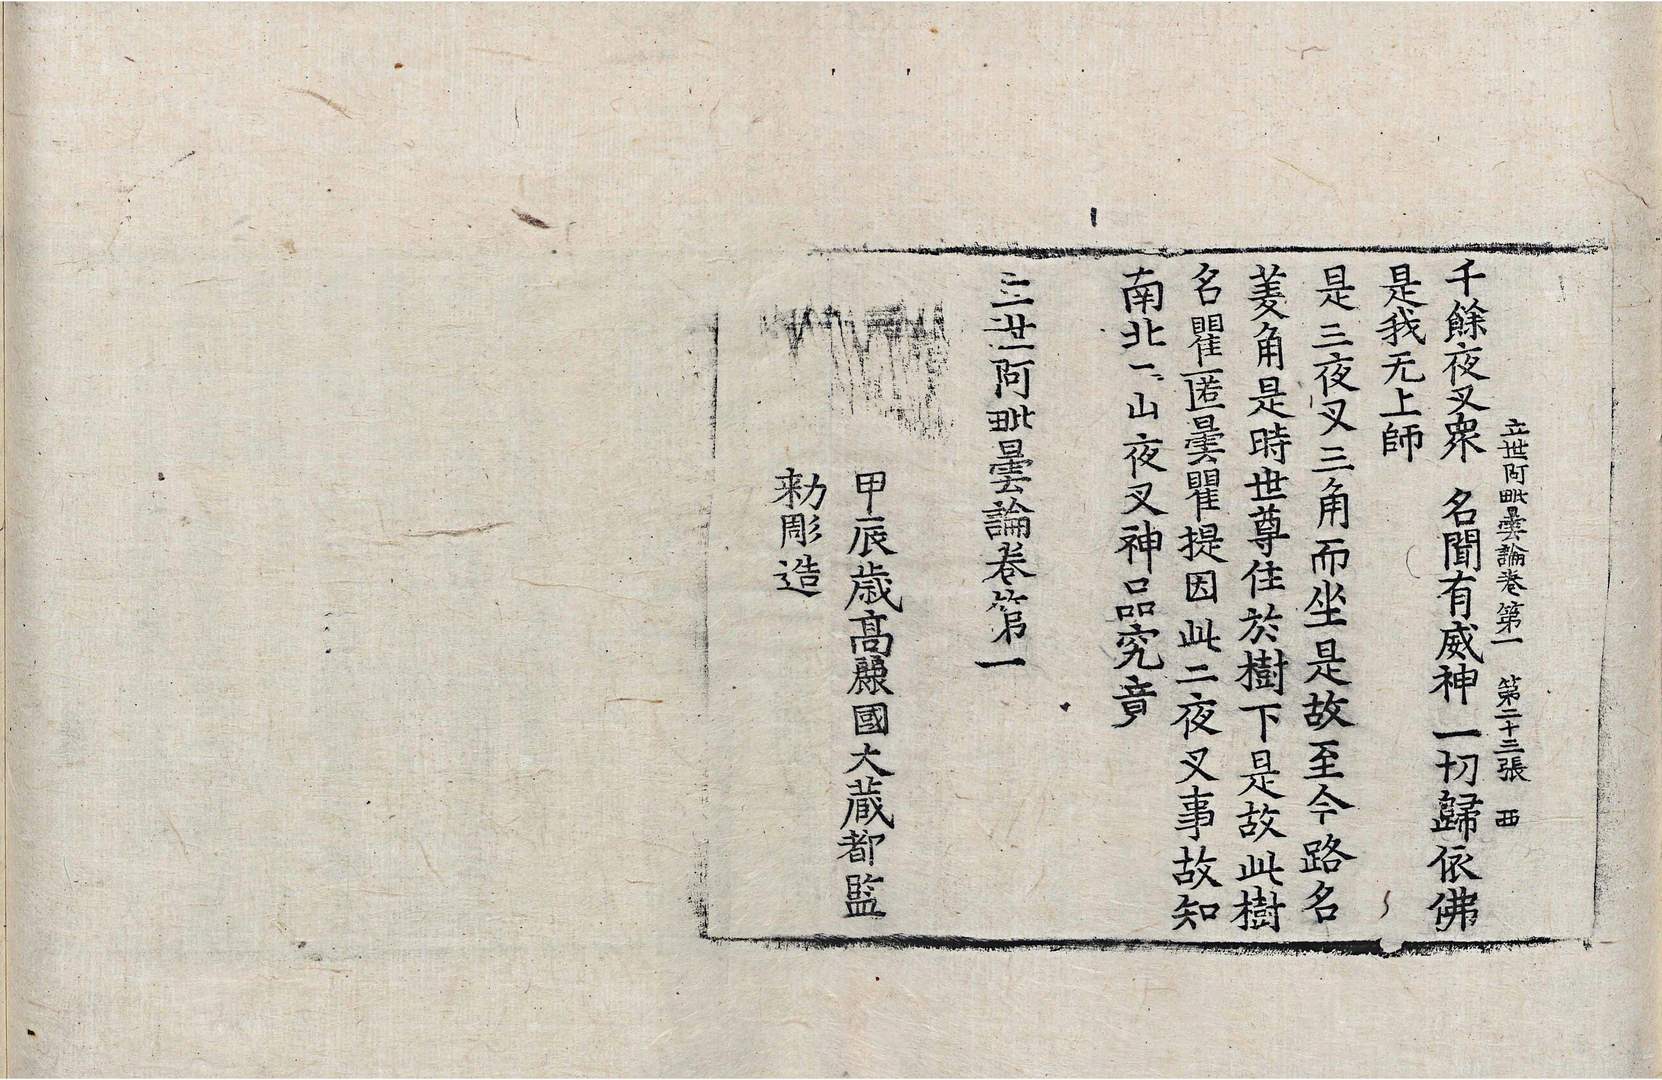 立世阿毗曇論卷第一 第二十三張 西
千餘夜叉衆 名聞有威神 一切歸依佛
是我无上師
是三夜叉三角而坐是故至今路名
菱角是時世尊住於樹下是故此樹
名瞿匿曇瞿提因此二夜叉事故知
南北二山夜叉神品究竟
立世阿毗曇論卷第一
甲辰歲高麗國大藏都監
勑彫造